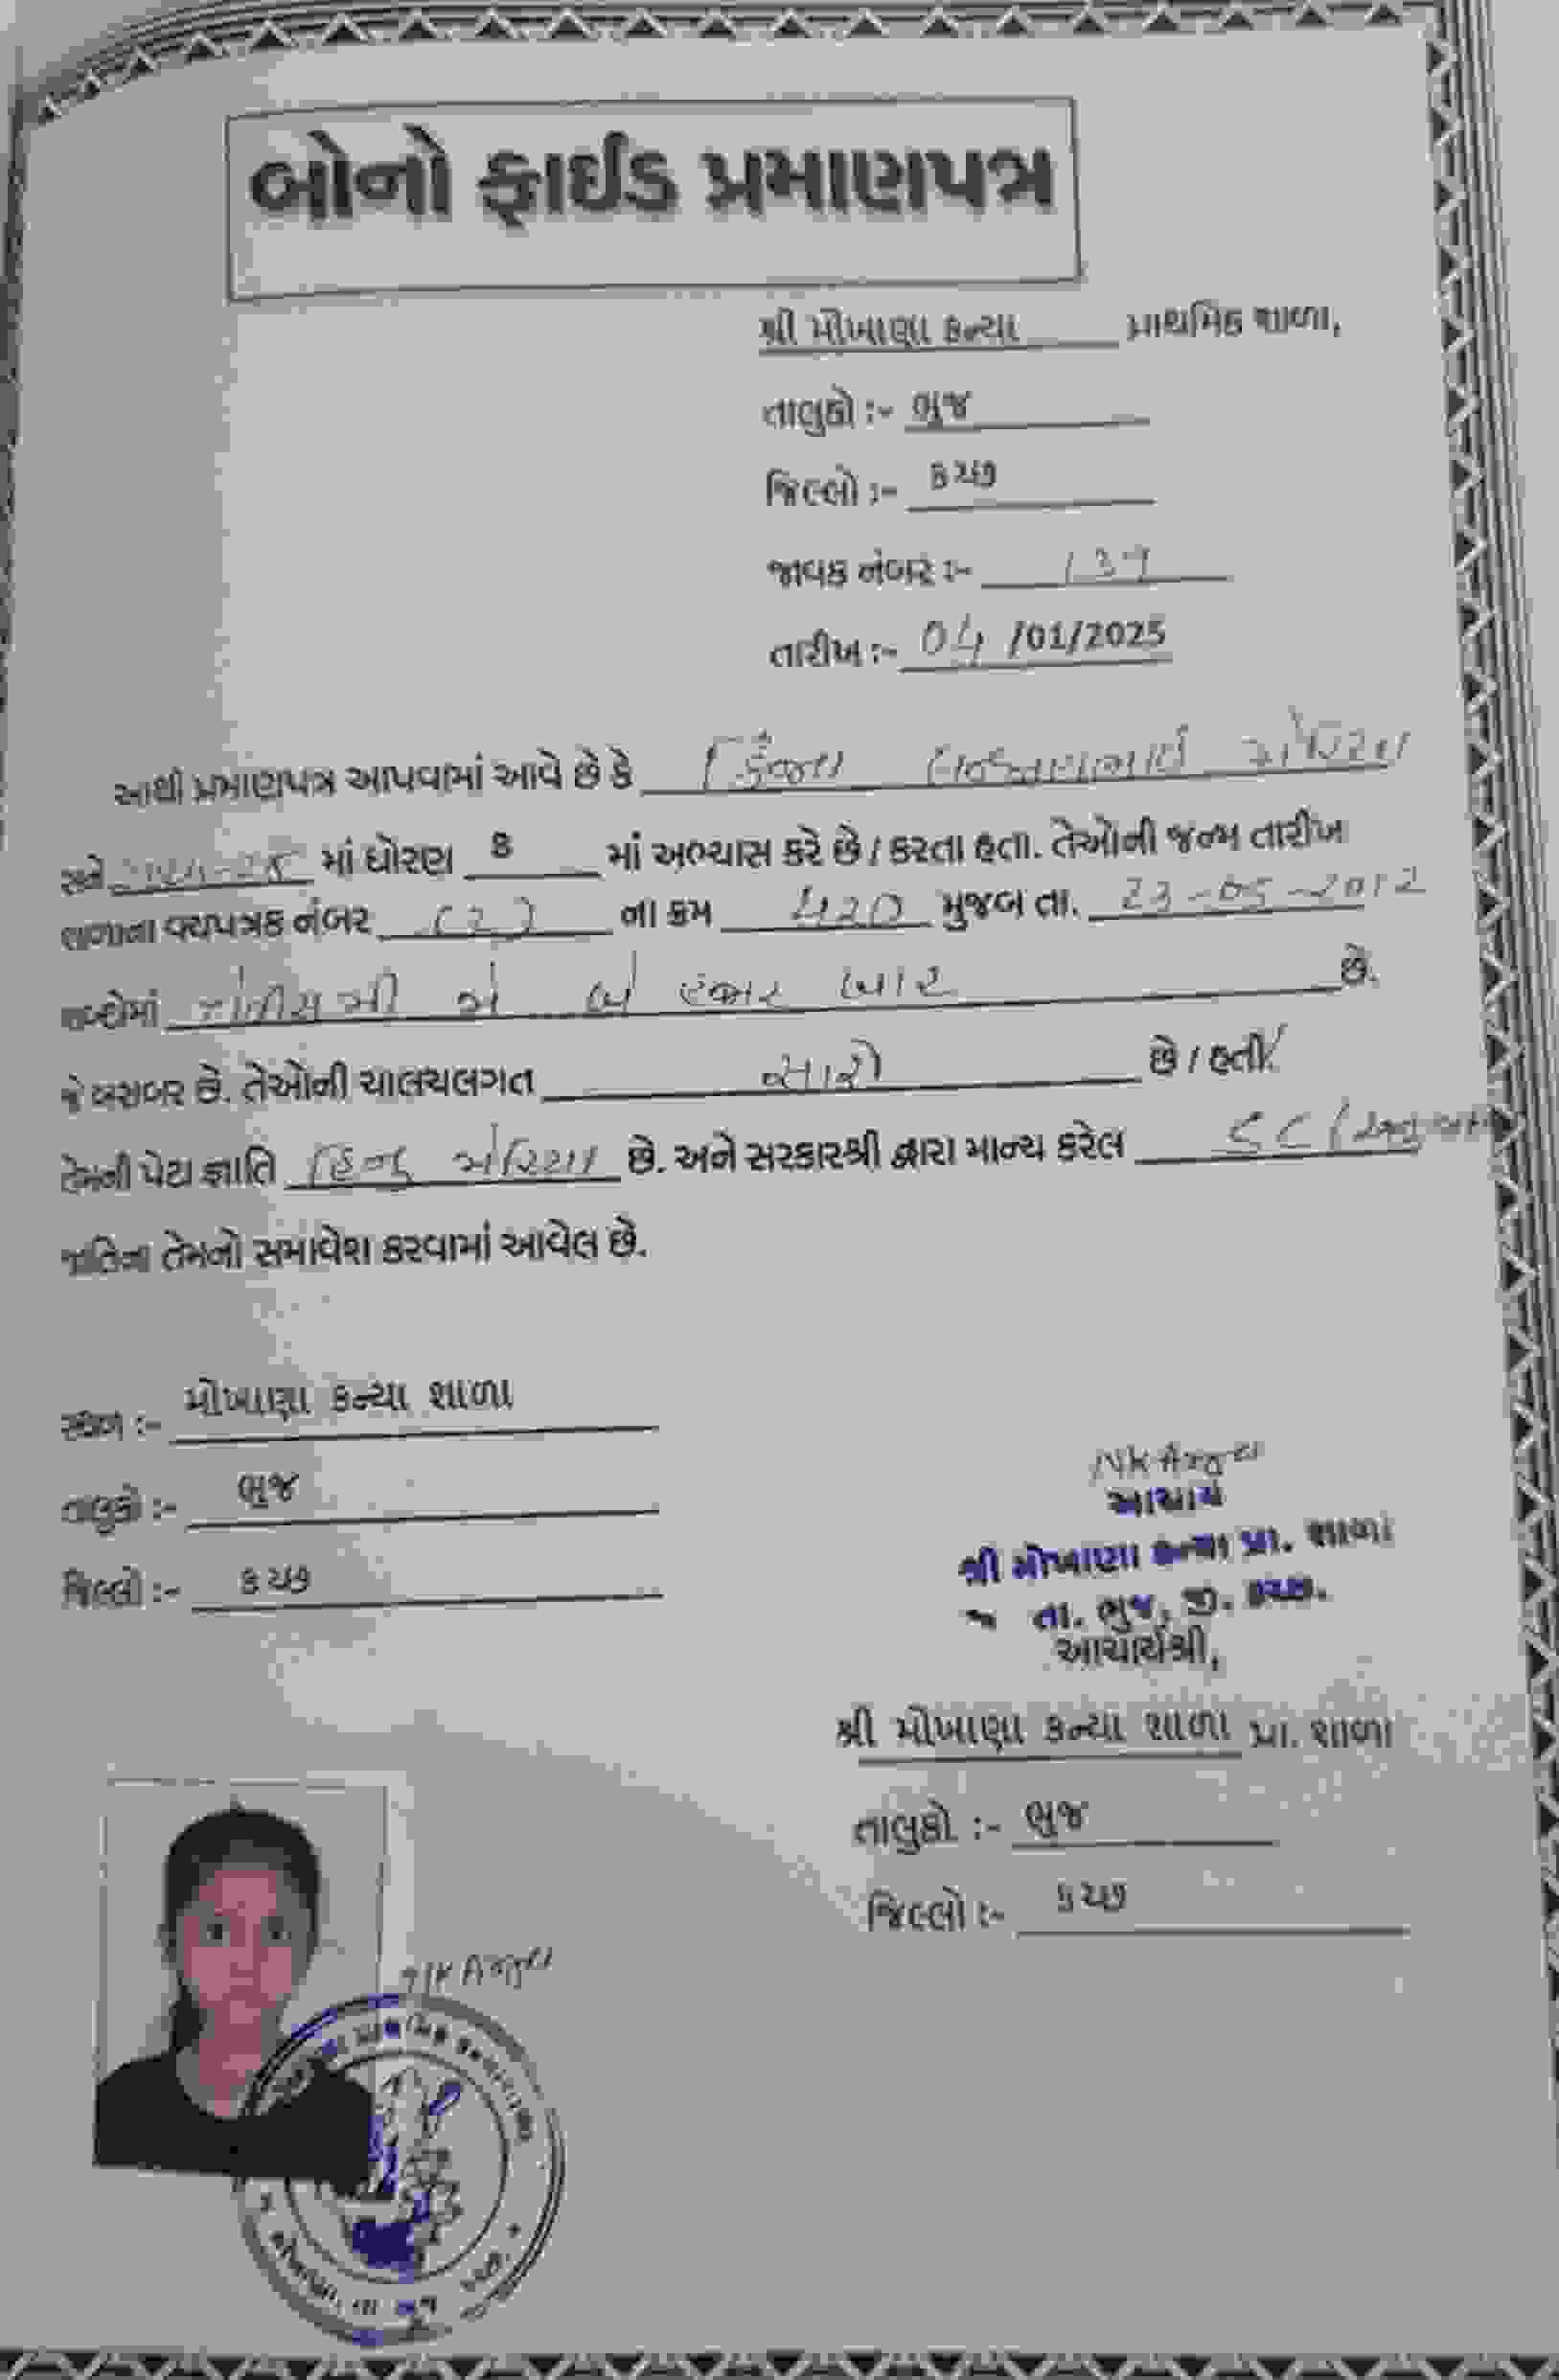 બોનો ફાઈડ પ્રમાણપત્ર
શ્રી મોખાણા કન્યા પ્રાથમિક શાળા,
તાલુકો :- ભુજ
જિલ્લો :- કચ્છ
જાવક નંબર :-
તારીખ :- 04/01/2025
આથી પ્રમાણપત્ર આપવામાં આવે છે કે
સને માં ધોરણ 8 માં અભ્યાસ કરે છે / કરતા હતા. તેઓની જન્મ તારીખ
શાળાના વયપત્રક નંબર (2) ના ક્રમ 420 મુજબ તા. 23-05-2012
શબ્દોમાં બે હજાર બાર છે.
જે બરાબર છે. તેઓની ચાલચલગત સારી છે / હતી.
તેમની પેટા જ્ઞાતિ હિન્દુ છે. અને સરકારશ્રી દ્વારા માન્ય કરેલ SC
જાતિના તેમનો સમાવેશ કરવામાં આવેલ છે.
સ્થળ :- મોખાણા કન્યા શાળા
તાલુકો :- ભુજ
જિલ્લો :- કચ્છ
આચાર્ય
શ્રી મોખાણા કન્યા પ્રા. શાળા
તા. ભુજ, જી. કચ્છ.
આચાર્યશ્રી,
શ્રી મોખાણા કન્યા શાળા પ્રા. શાળા
તાલુકો :- ભુજ
જિલ્લો :- કચ્છ